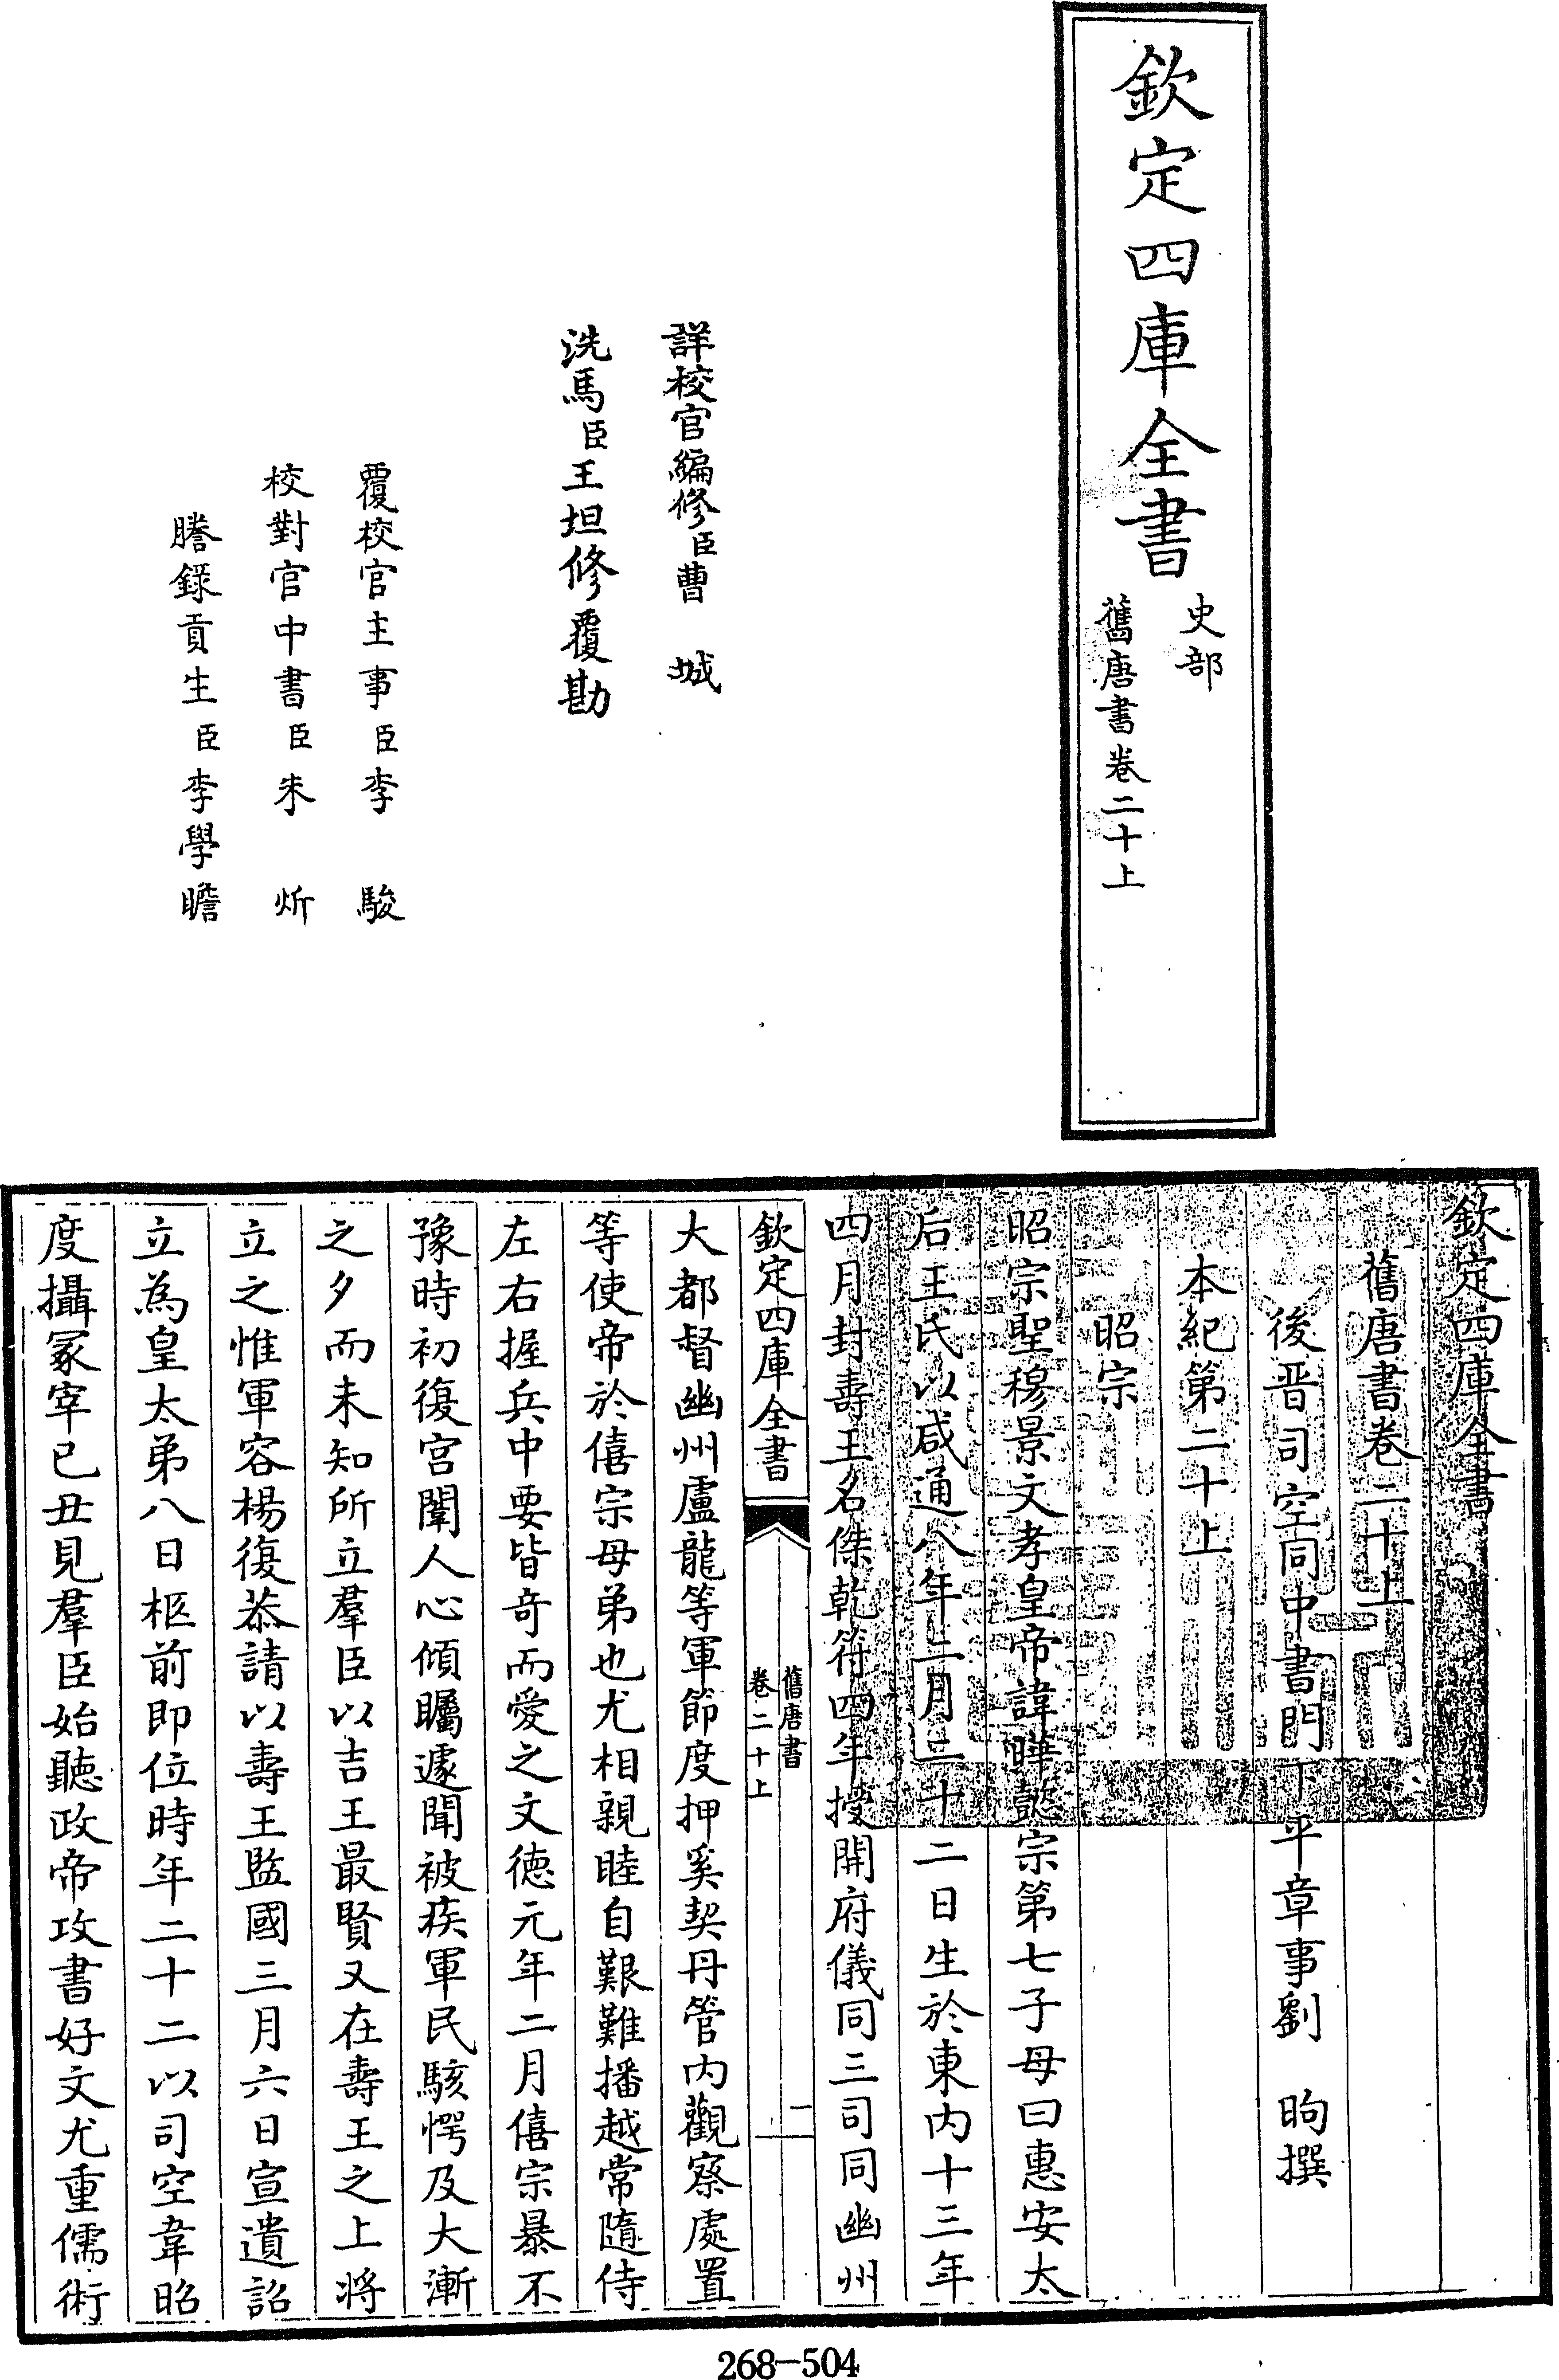 欽定四庫全書
史部
舊唐書卷二十上
詳校官編修臣曹城
洗馬臣王坦修覆勘
覆校官主事臣李駿
校對官中書臣朱炘
謄錄貢生臣李學瞻
欽定四庫全書
舊唐書卷二十上
後晉司空同中書門下平章事劉昫撰
本紀第二十上
昭宗
昭宗聖穆景文孝皇帝諱曄懿宗第七子母曰惠安太
后王氏以咸通八年二月二十二日生於東內十三年
四月封壽王名傑乾符四年授開府儀同三司同幽州
欽定四庫全書
舊唐書
卷二十上
一
大都督幽州盧龍等軍節度押奚契丹管內觀察處置
等使帝於僖宗母弟也尤相親睦自艱難播越常隨侍
左右握兵中要皆奇而愛之文德元年二月僖宗暴不
豫時初復宮闈人心傾矚遽聞被疾軍民駭愕及大漸
之夕而未知所立羣臣以吉王最賢又在壽王之上將
立之惟軍容楊復恭請以壽王監國三月六日宣遺詔
立為皇太弟八日柩前即位時年二十二以司空韋昭
度攝冢宰己丑見羣臣始聽政帝攻書好文尤重儒術
268-504